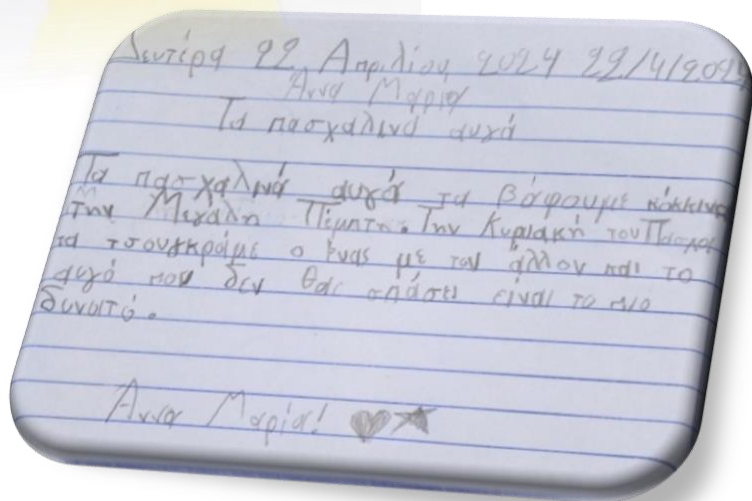 Δευτέρα 22 Απριλίου 2024 22/4/2024
Άννα Μαρία
Τα πασχαλινά αυγά
Τα πασχαλινά αυγά τα βάφουμε κόκκινα
την Μεγάλη Πέμπτη. Την Κυριακή του Πάσχα
τα τσουγκράμε ο ένας με τον άλλον και το
αυγό που δεν θα σπάσει είναι το πιο
δυνατό.
Άννα Μαρία!